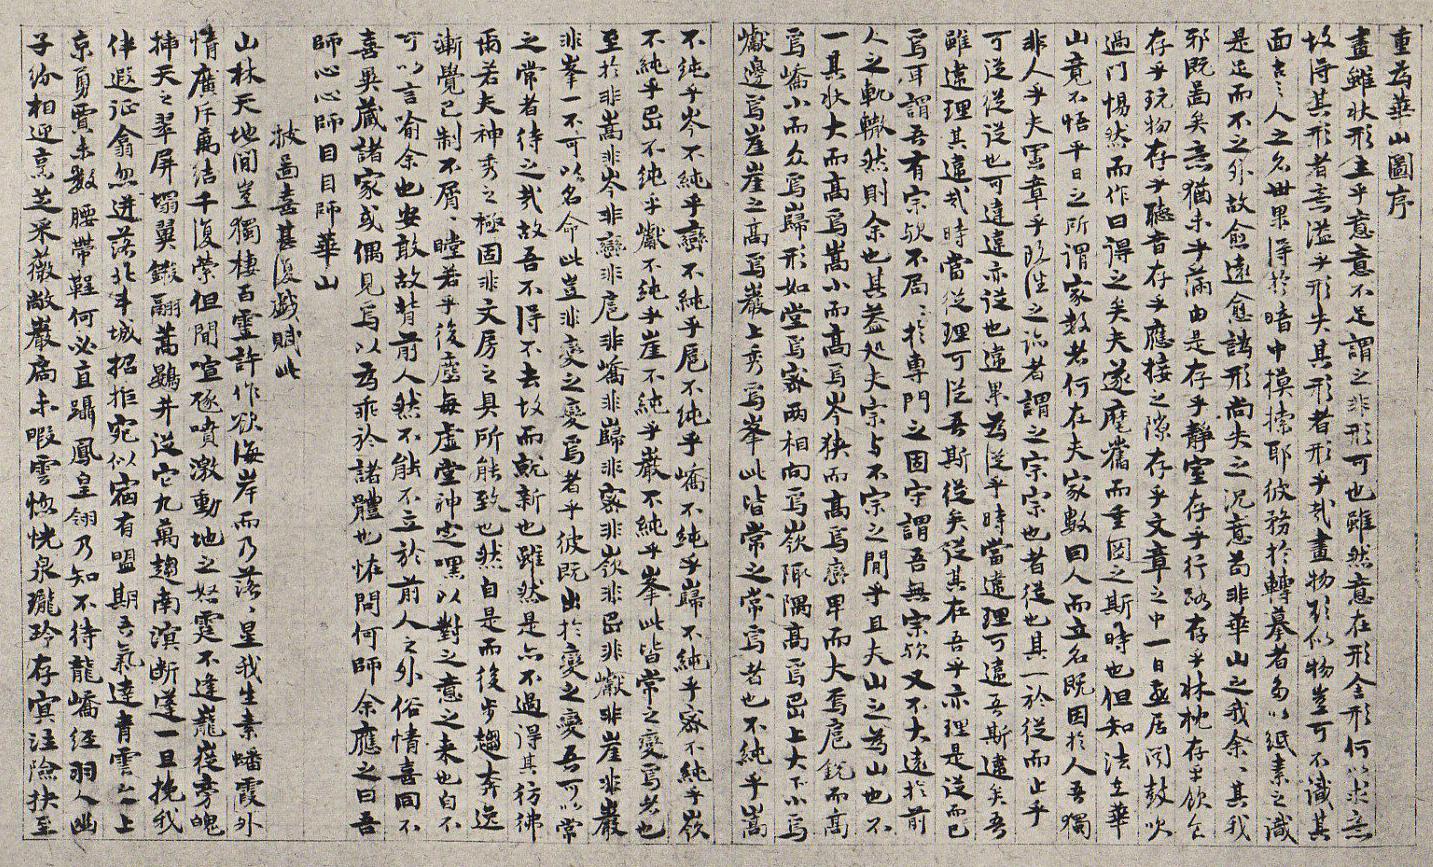 重為華山圖序
畫雖狀形主乎意意不足謂之非形可也雖然意在形舍形何以求意
故得其形者意溢乎形失其形者形乎哉畫物欲似物豈可不識其
面古之人之名世果得於暗中摸索耶彼務於轉摹者多以紙素之識
是足而不之外故愈遠愈譌形尚失之況意苟非華山之我余余其我
邪既圖矣意猶未乎滿由是存乎靜室存乎行路存乎牀枕存乎飲食
存乎玩物存乎聽音存乎應接之隙存乎文章之中一日燕居聞鼓吹
過門惕然而作曰得之矣夫遂麾舊而重圖之斯時也但知法在華
山竟不悟平日之所謂家數者何在夫家數因人而立名既因於人吾獨
非人乎夫憲章乎既往之迹者謂之宗宗也者從也其一於從而止乎
可從從從也可違違亦從也違果為從乎時當違理可違吾斯違矣吾
雖違理其違哉時當從理可從吾斯從矣從其在吾乎亦理是從而已
焉耳謂吾有宗歟不局局於專門之固守謂吾無宗歟又不大遠於前
人之軌轍然則余也其蓋處夫宗與不宗之間乎且夫山之為山也不
一其狀大而高焉嵩小而高焉岑狹而高焉巒卑而大焉扈銳而高
焉嶠小而众焉巋形如堂焉密兩相向焉嶔陬隅高焉岊上大下小焉
巘邊焉崖崖之高焉巖上秀焉峯此皆常之常焉者也不純乎嵩
不純乎岑不純乎巒不純乎扈不純乎嶠不純乎巋不純乎密不純乎嶔
不純乎岊不純乎巘不純乎崖不純乎巖不純乎峯此皆常之變焉者也
至於非嵩非岑非巒非扈非嶠非巋非密非嶔非岊非巘非崖非巖
非峯一不可以名命此豈非變之變焉者乎彼既出於變之變吾可以常
之常者待之哉故吾不得不去故而就新也雖然是亦不過得其彷彿
耳若夫神秀之極固非文房之具所能致也然自是而後步趨奔逸
漸覺已制不屑屑瞠若乎後塵每虛堂神定嘿以對之意之來也自不
可以言喻余也安敢故背前人然不能不立於前人之外俗情喜同不
喜異藏諸家或偶見焉以為乖於諸體也怪問何師余應之曰吾
師心心師目目師華山
披圖喜甚復戲賦此
山林天地間豈獨棲百靈許作欲海岸而乃落落星我生素蟠霞外
情廣斥萬結千復縈但聞喧豗噴激動地之怒霆不逢巃嵸旁魄
插天之翠屏塌翼鎩翮蒿鷃并從它九萬趨南溟斷蓬一旦挽我
伴遐征翕忽迸落北斗城招拒宛似宿有盟期吾氣達青雲之上
京勇賈未數腰帶鞓何必直躡鳳皇翎乃知不待龍嶠經羽人幽
子紛相迎烹芝采薇敞巖扃未暇雲惚恍泉瓏玲存冥注險抉至